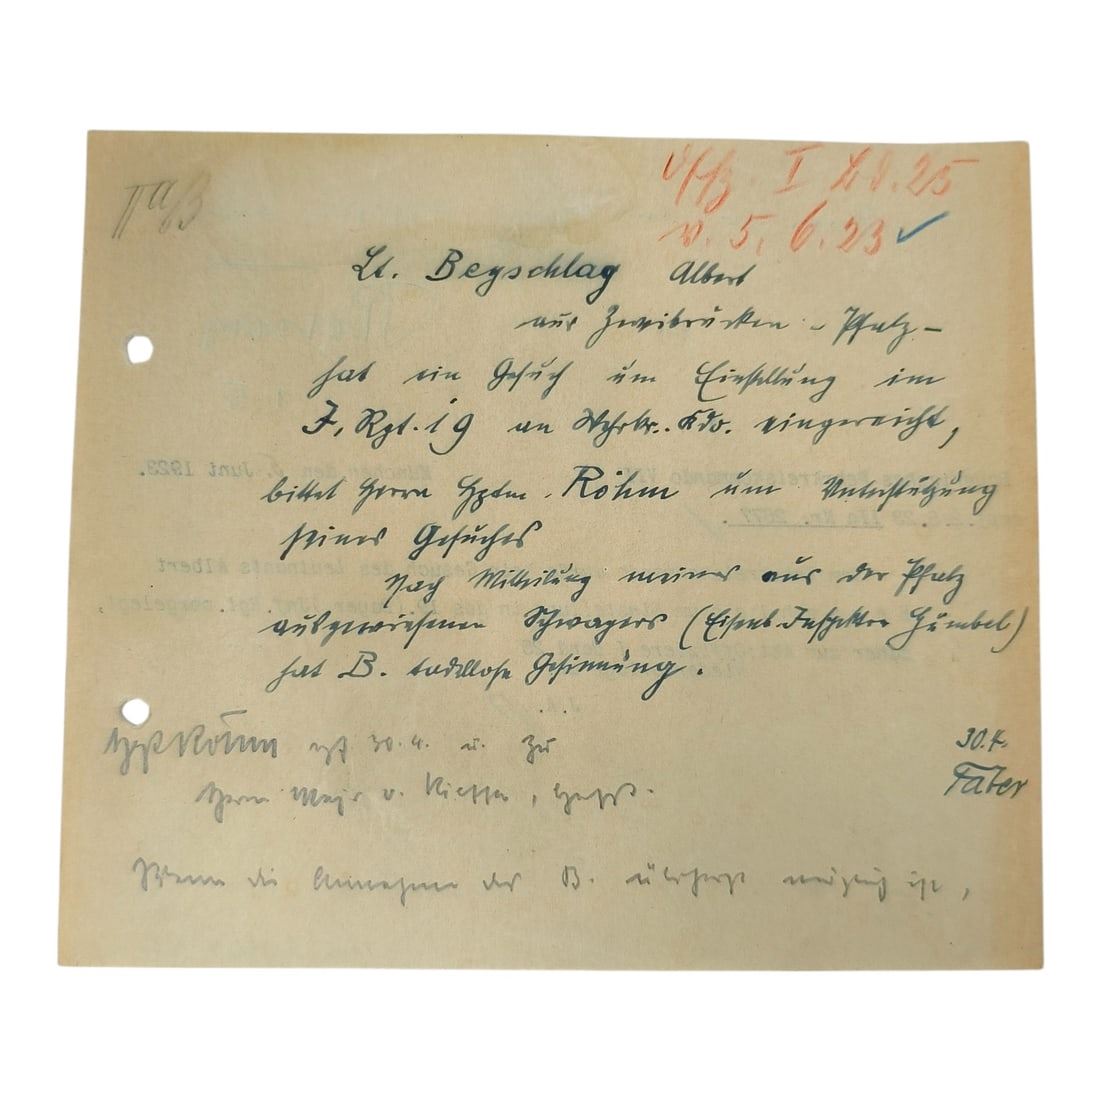 II a/3
Offz. I Ld. 25
v. 5. 6. 23 ✓
Lt. Beyschlag Albert
aus Zweibrücken - Pfalz -
hat ein Gesuch um Einstellung im
J. Rgt. 19 an Wehrkr. Kdo. eingereicht,
bittet Herrn Hptm. Röhm um Unterstützung
seines Gesuches
Nach Mitteilung meines aus der Pfalz
ausgewiesenen Schwagers (Eisenb. Inspektor Gümbel)
hat B. tadellose Gesinnung.
30.4.
Faber
Hptm Röhm 30.4. u. zu
Herrn Major v.
Wenn die Annahme des B. überhaupt möglich ist,